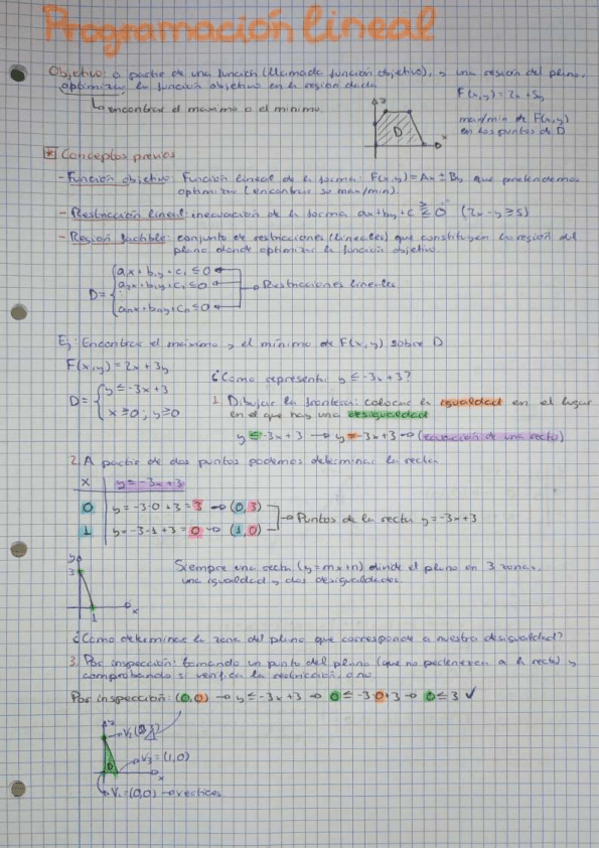 Programación lineal
Objetivo: a partir de una función (llamada función objetivo), y una región del plano,
optimizar la función objetivo en la región dada
F(x,y) = 2x + 5y
↳ encontrar el maximo o el minimo.
max/min de F(x,y)
en los puntos de D
D
* Conceptos previos
- Función objetivo: Función lineal de la forma: F(x,y) = Ax ± By que pretendemos
optimizar (encontrar su max/min).
- Restricción lineal: inecuación de la forma ax+by+c ≧≦ 0 (2x-y≥5)
- Región factible: conjunto de restricciones (lineales) que constituyen la región del
plano donde optimizar la función objetivo.
a₁x + b₁y + c₁ ≤ 0
D = { a₂x + b₂y + c₂ ≤ 0 → Restricciones lineales
aₙx + bₙy + cₙ ≤ 0
Ej: Encontrar el maximo y el mínimo de F(x,y) sobre D
F(x,y) = 2x + 3y
D = { y ≤ -3x + 3
x ≥ 0 ; y ≥ 0
¿Como represento y ≤ -3x + 3?
1. Dibujar la frontera: colocar la igualdad en el lugar
en el que hay una desigualdad
y ≤ -3x + 3 → y = -3x + 3 → (ecuación de una recta)
2. A partir de dos puntos podemos determinar la recta.
x y = -3x + 3
0 y = -3·0 + 3 = 3 → (0,3)
1 y = -3·1 + 3 = 0 → (1,0)
→ Puntos de la recta y = -3x + 3
y
3
1 x
Siempre una recta (y = mx + n) divide el plano en 3 zonas,
una igualdad y dos desigualdades.
¿Como determinar la zona del plano que corresponde a nuestra desigualdad?
3. Por inspección: tomando un punto del plano (que no pertenezca a la recta) y
comprobando si verifica la restricción o no.
Por inspección: (0,0) → y ≤ -3x + 3 → 0 ≤ -3·0 + 3 → 0 ≤ 3 ✓
D
V₃ = (1,0)
x
V₁ = (0,0) → vertices